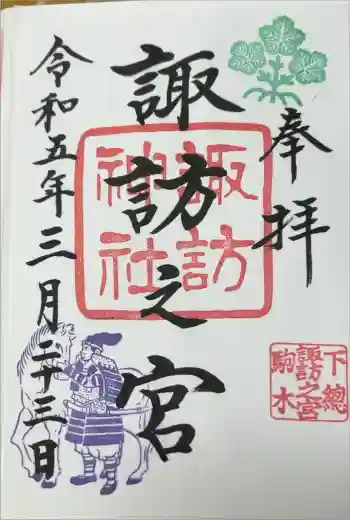 奉拝
諏訪之宮
諏訪
神社
下總
諏訪之宮
駒木
令和五年三月二十三日